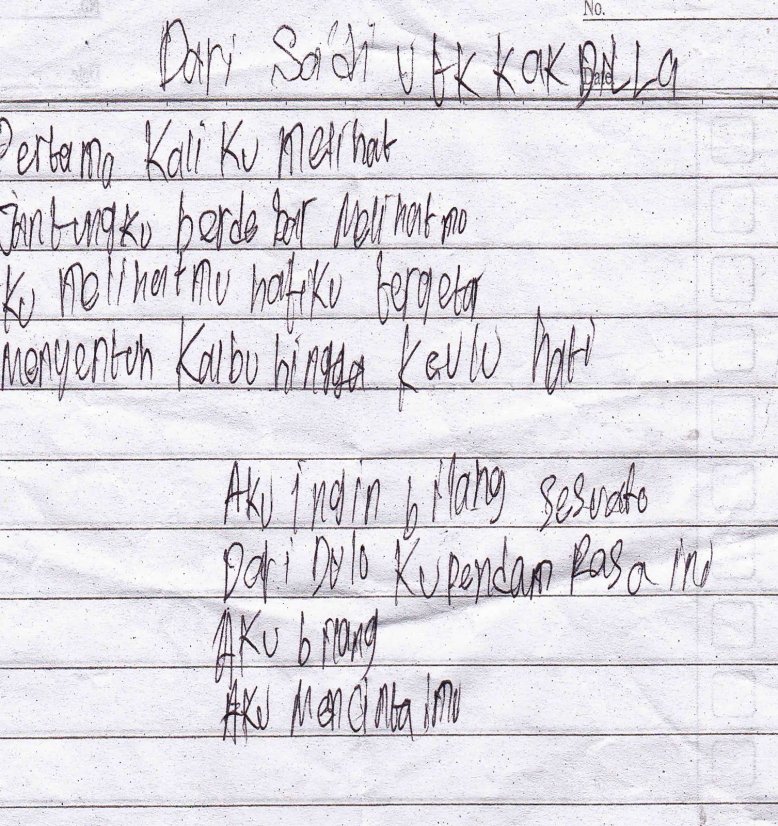 No.
Date
Dari Saidi utk kak DiLLa
Pertama Kali Ku Melihat
Jantungku berdebar Melihatmu
Ku Melihatmu hatiku bergetar
Menyentuh Kalbu hingga Keulu hati
Aku ingin bilang sesuatu
Dari Dulu Kupendam Rasa ini
Aku bilang
Aku Mencintaimu